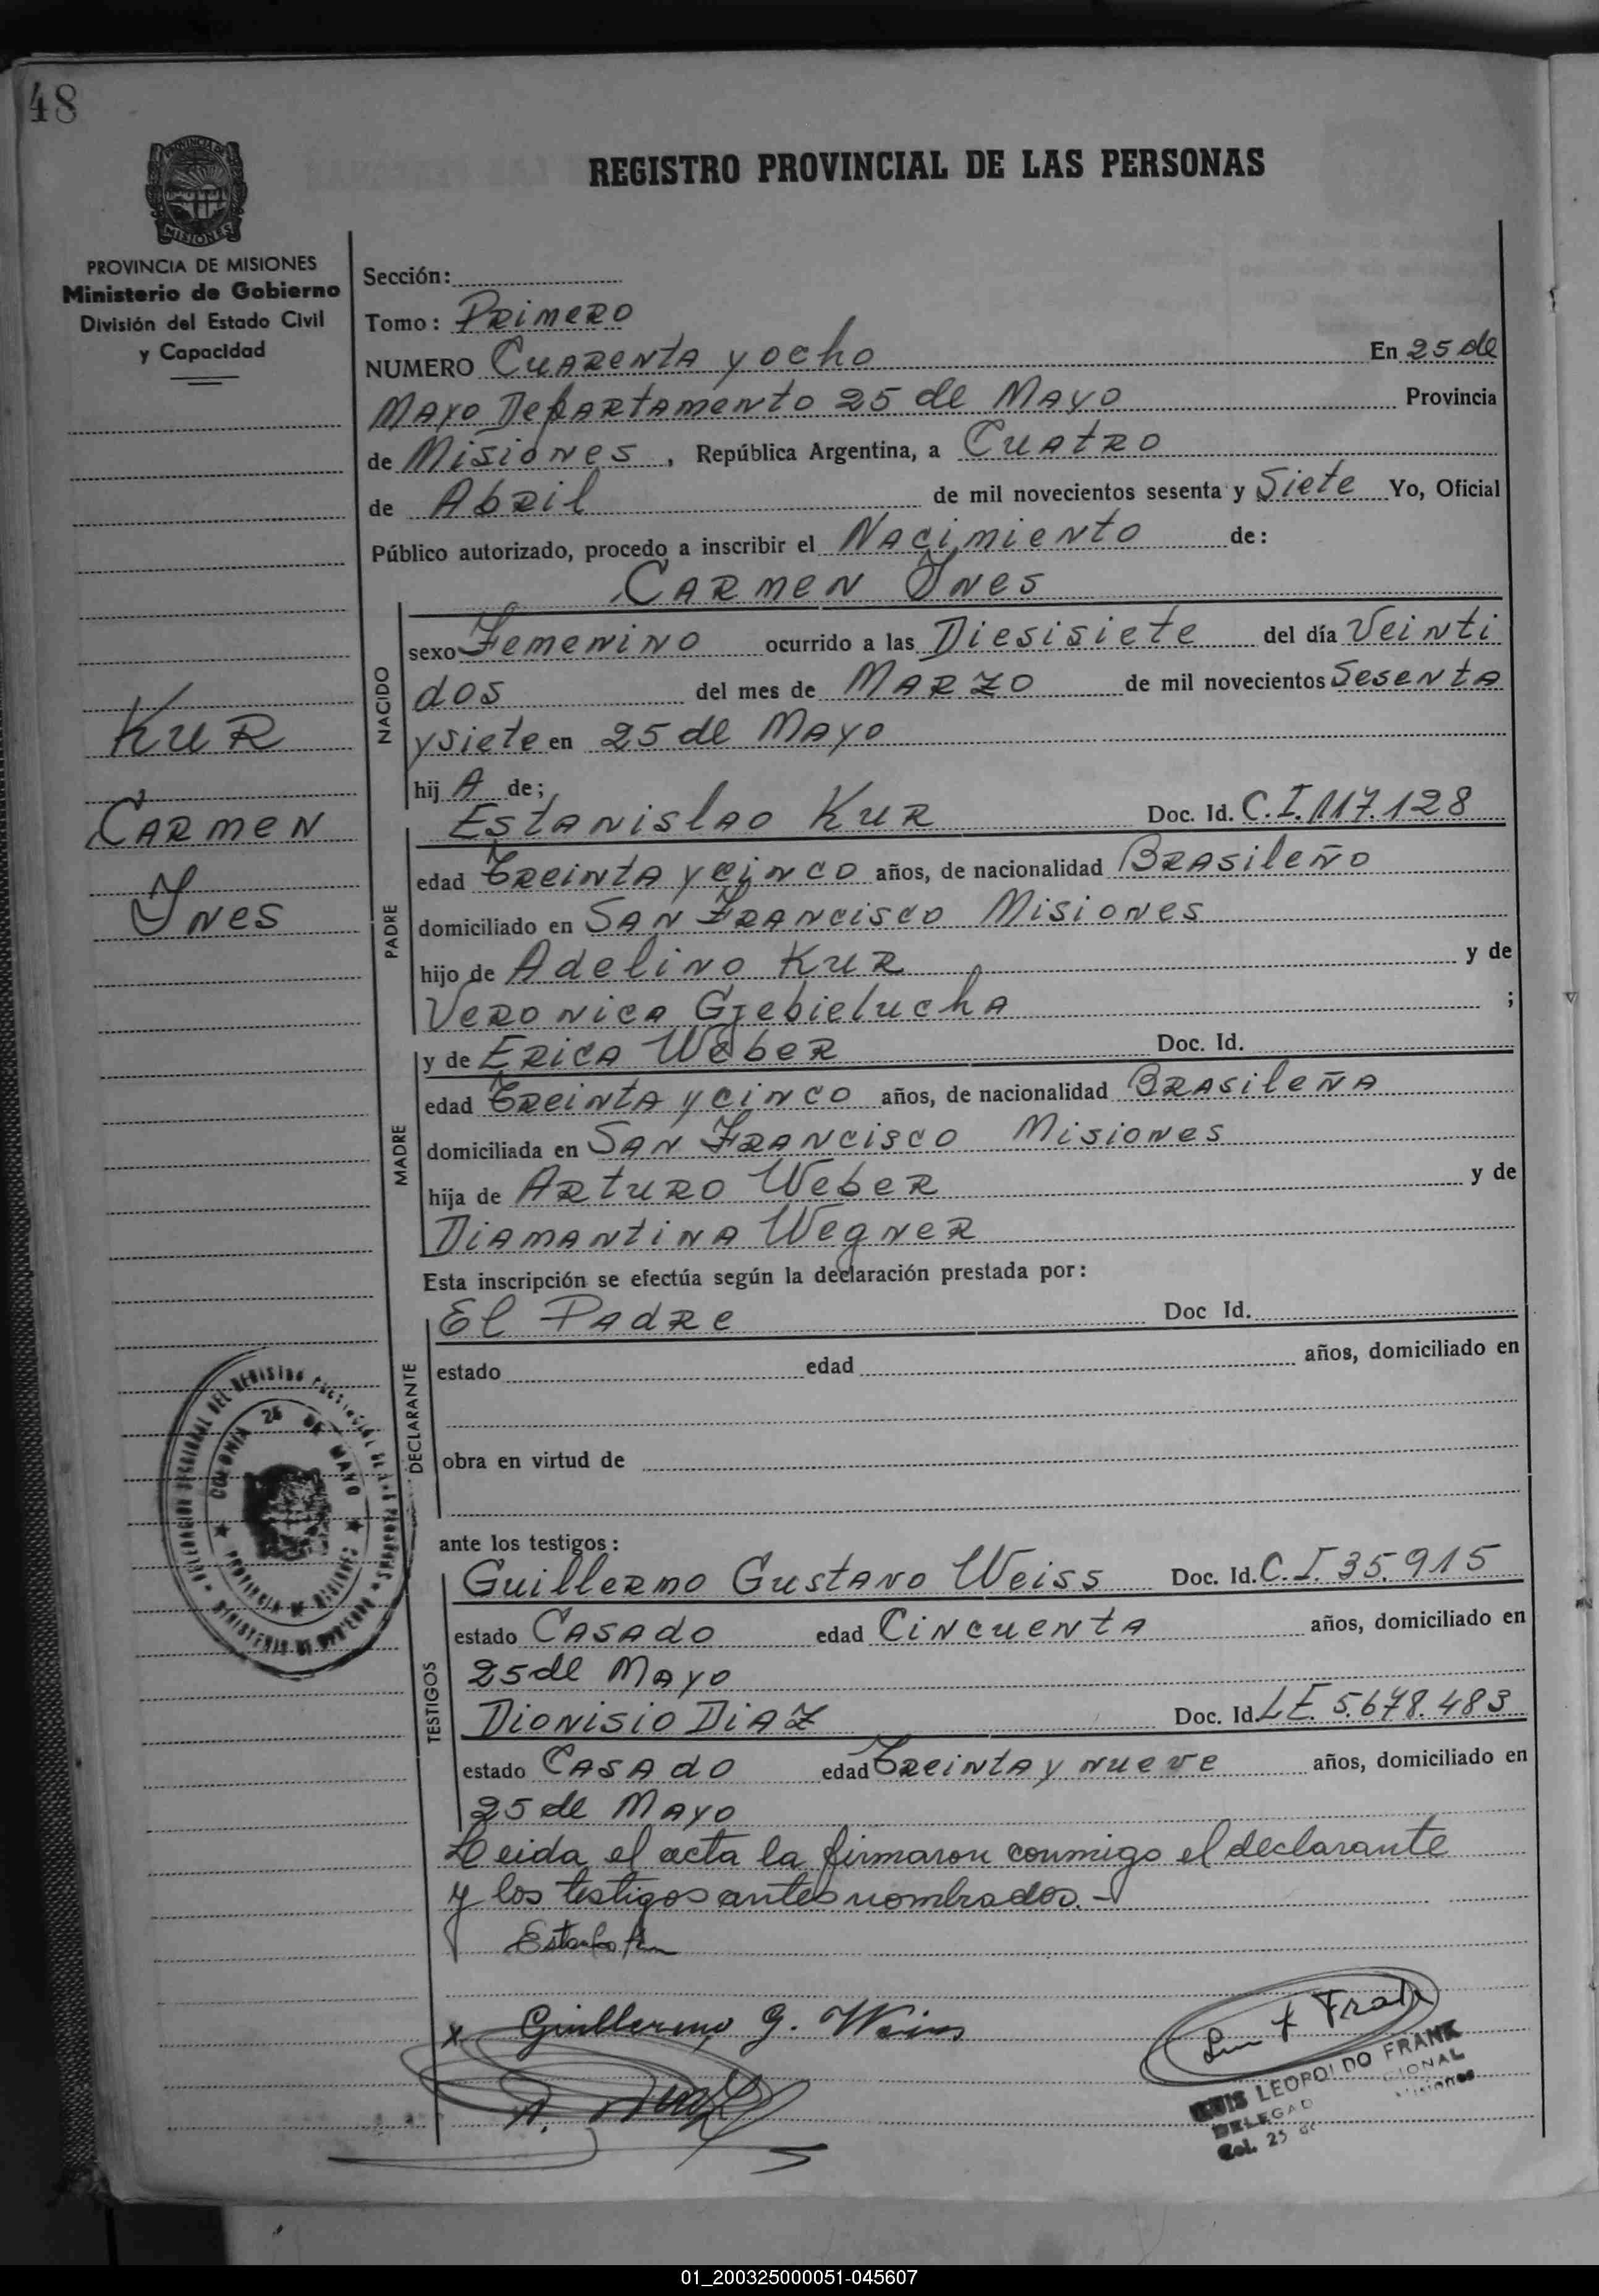 48
REGISTRO PROVINCIAL DE LAS PERSONAS
PROVINCIA DE
MISIONES
PROVINCIA DE MISIONES
Ministerio de Gobierno
División del Estado Civil
y Capacidad
Sección:
Tomo: Primero
NUMERO Cuarenta y ocho En 25 de
Mayo Departamento 25 de Mayo Provincia
de Misiones, República Argentina, a Cuatro
de Abril de mil novecientos sesenta y Siete Yo, Oficial
Público autorizado, procedo a inscribir el Nacimiento de:
Carmen Ynes
NACIDO
sexo Femenino ocurrido a las Diesisiete del día Veinti
dos del mes de Marzo de mil novecientos Sesenta
y siete en 25 de Mayo
hij A de;
Kur
Carmen
Ynes
PADRE
Estanislao Kur Doc. Id. C.I. 117.128
edad Treinta y cinco años, de nacionalidad Brasileño
domiciliado en San Francisco Misiones
hijo de Adelino Kur y de
Veronica Gjebielucha ;
MADRE
y de Erica Weber Doc. Id.
edad Treinta y cinco años, de nacionalidad Brasileña
domiciliada en San Francisco Misiones
hija de Arturo Weber y de
Diamantina Wegner
Esta inscripción se efectúa según la declaración prestada por:
DECLARANTE
El Padre Doc Id.
estado edad años, domiciliado en
obra en virtud de
COLONIA 25 DE MAYO
PROVINCIA DE MISIONES
ante los testigos:
TESTIGOS
Guillermo Gustavo Weiss Doc. Id. C.I. 35.915
estado Casado edad Cincuenta años, domiciliado en
25 de Mayo
Dionisio Diaz Doc. Id. L E. 5.678.483
estado Casado edad Treinta y nueve años, domiciliado en
25 de Mayo
Leida el acta la firmaron conmigo el declarante
y los testigos antes nombrados.-
x Guillermo G. Weiss
LUIS LEOPOLDO FRANK
Col. 25 de
01_200325000051-045607